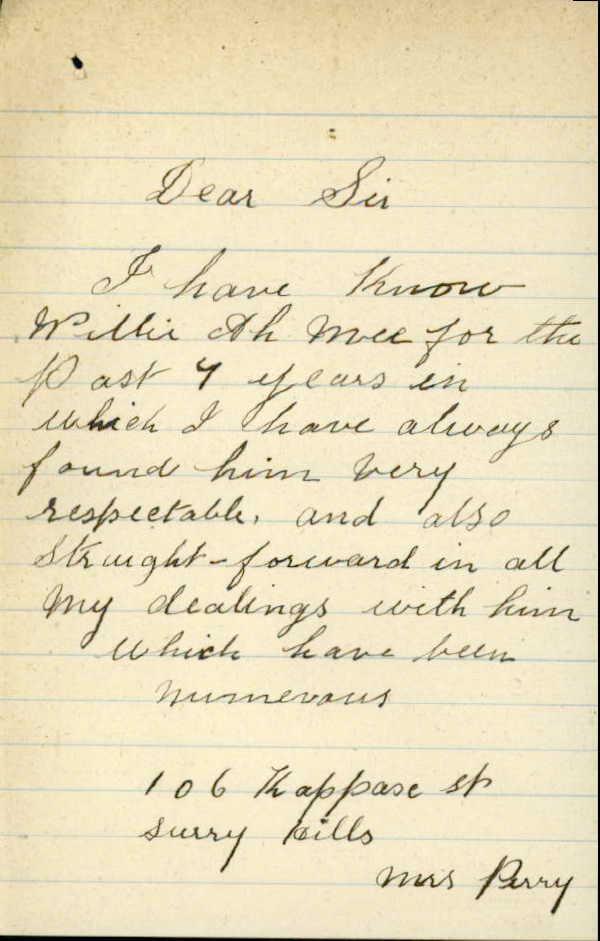 Dear Sir
I have Know
Willie Ah Mee for the
Past 7 years in
which I have always
found him Very
respectable. and also
Straught-forward in all
My dealings with him
which have been
numerous
106 Kappase st
surry hills
Mrs Perry